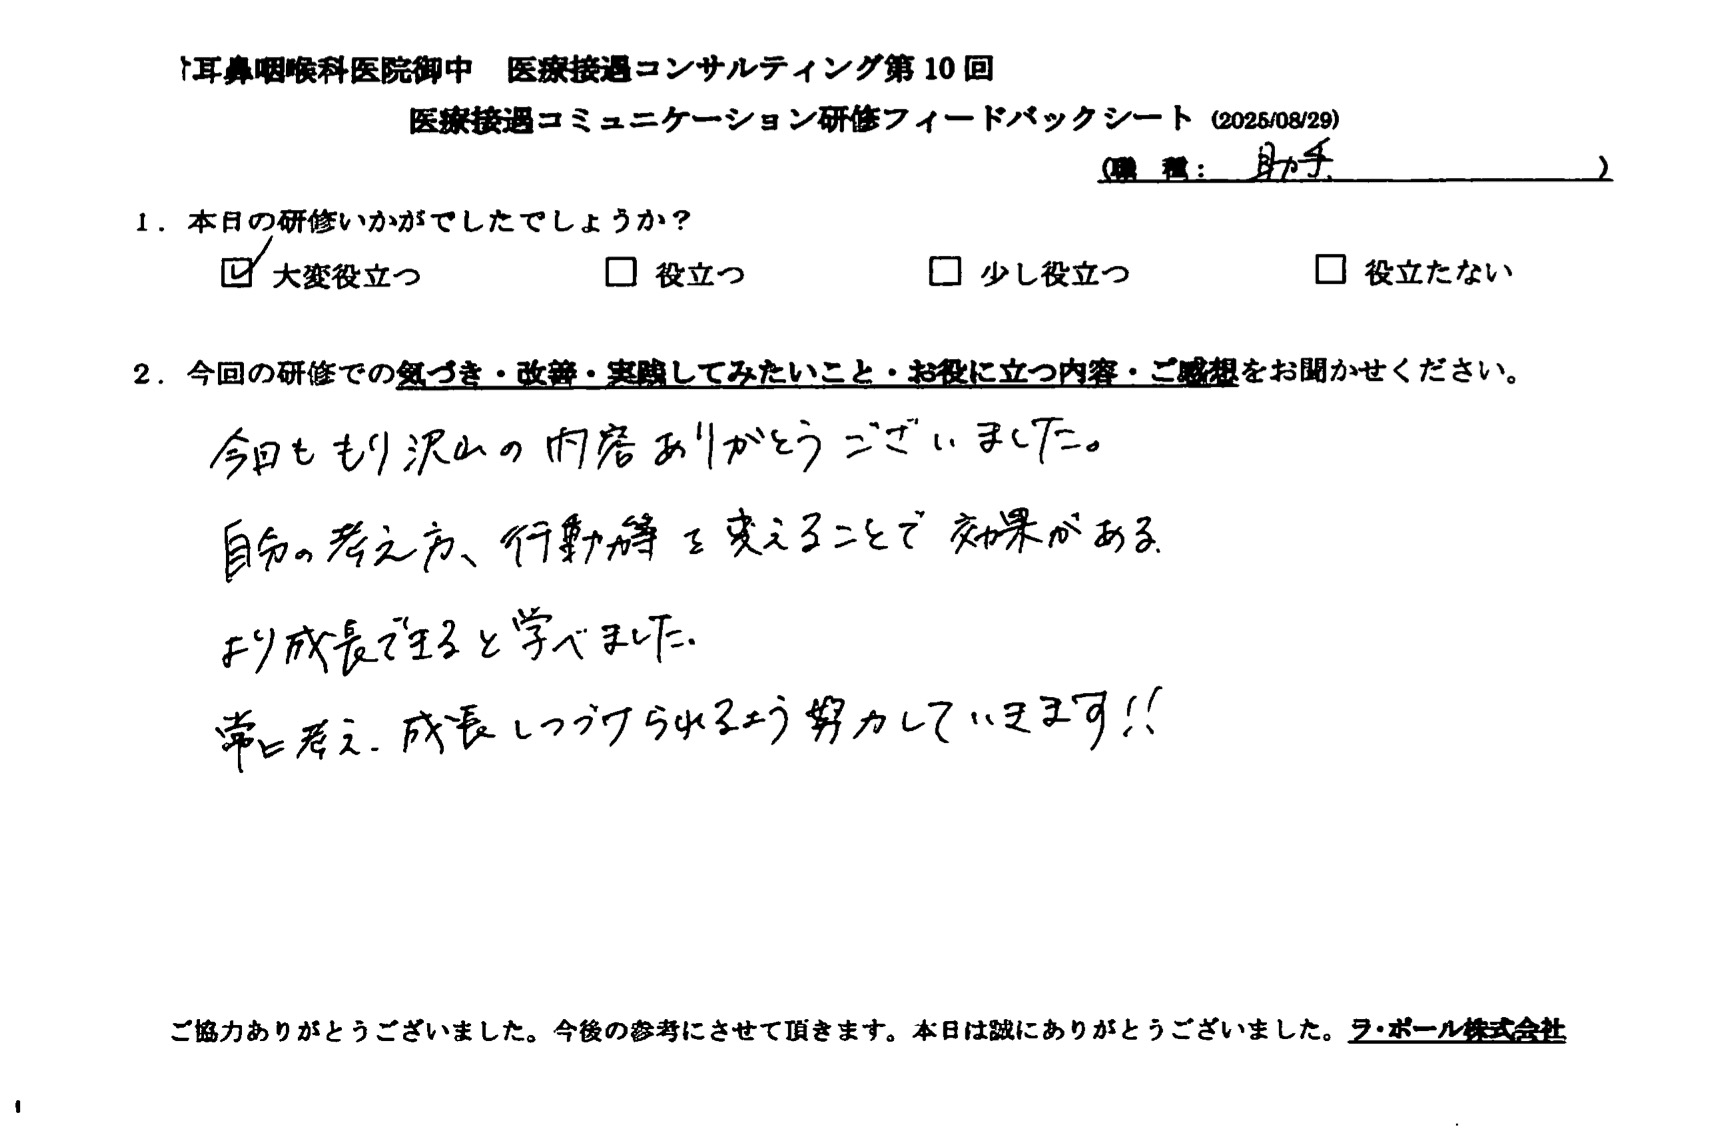 耳鼻咽喉科医院御中　医療接遇コンサルティング第10回
医療接遇コミュニケーション研修フィードバックシート (2025/08/29)
(職　種： 助手 )
1．本日の研修いかがでしたでしょうか？
☑ 大変役立つ　□ 役立つ　□ 少し役立つ　□ 役立たない
2．今回の研修での気づき・改善・実践してみたいこと・お役に立つ内容・ご感想をお聞かせください。
今回ももり沢山の内容ありがとうございました。
自分の考え方、行動等を変えることで効果がある、
より成長できると学べました。
常に考え、成長しつづけられるよう努力していきます!!
ご協力ありがとうございました。今後の参考にさせて頂きます。本日は誠にありがとうございました。ラ・ポール株式会社